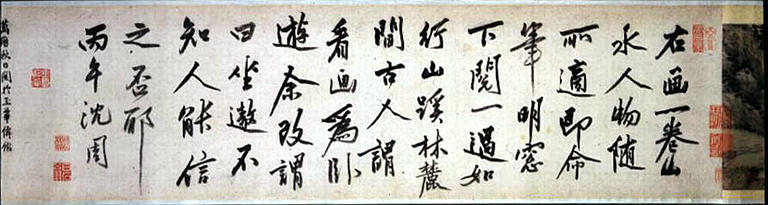 右画一卷山
水人物随
所適即命
筆明窓
下閲一過如
行山蹊林麓
間古人謂
看画為卧
遊余改謂
曰坐遨不
知人能信
之否耶
丙午沈周
秋日閲於玉華